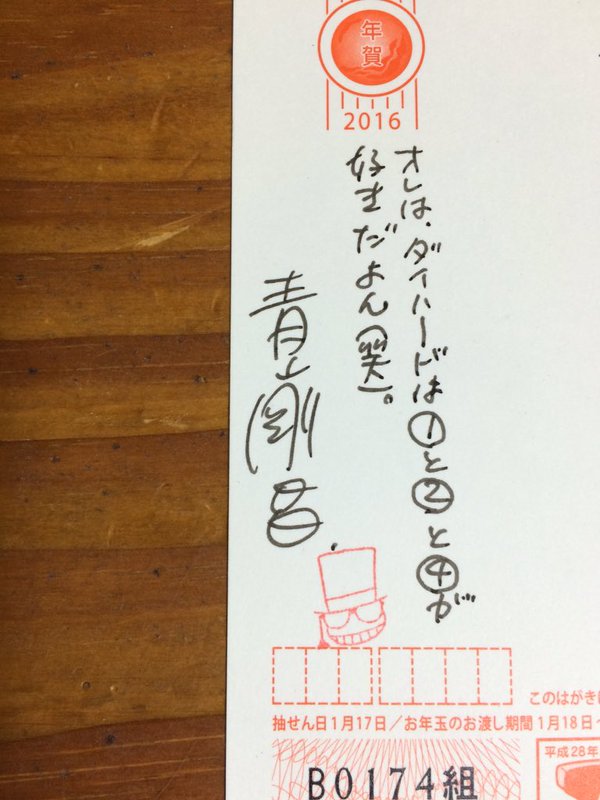 年賀
2016
オレは、ダイハードは①と②と④が
好きだよん(笑)。
青山剛昌
このはがき
抽せん日1月17日/お年玉のお渡し期間1月18日~
平成28年
B0174組